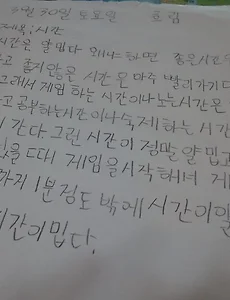 월 30일 토요일 흐림
제목:시간
시간은 얄밉다 왜냐하면 좋은시간
고 좋지않은 시간은 아주 빨리가기
그래서 게임 하는 시간이나노는시간은
고 공부하는시간이나숙제하는 시간
간다 그런 시간이 정말 얄밉고
있을 때 게임을시작해서 게
까지 1분정도 밖에 시간이
시간이밉다.